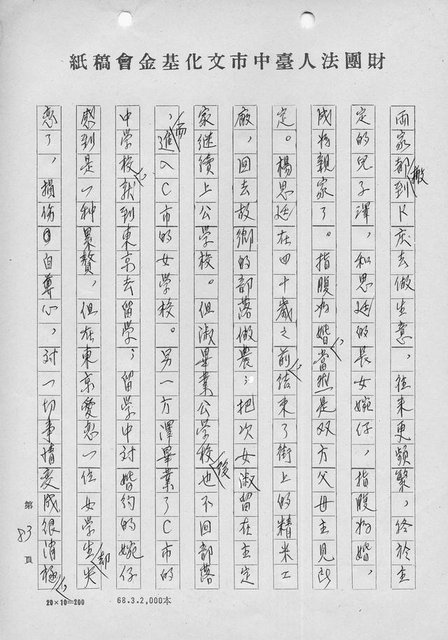 財團法人臺中市文化基金會稿紙
兩家都搬到K庄去做生意，往來更頻繁，終於主
定的兒子澤，和思廷的長女婉仔，指腹為婚，
成為親家了。指腹為婚，當然是双方父母主見所
定。楊思廷在四十歲之前，結束了街上的精米工
廠，回去故鄉的部落做農。把次女淑留在主定
家继续上公学校。但淑畢業公学校後，也不回部落
，而進入C市的女学校。另一方澤畢業了C市的
中学校，就到東京去留学；留学中对婚約的婉仔
感到是一种累贅，但在東京愛恋一位女学生，却失
恋了，損伤自尊心，对一切事情变成很消極。
第83頁
20×10=200 68.3.2,000本